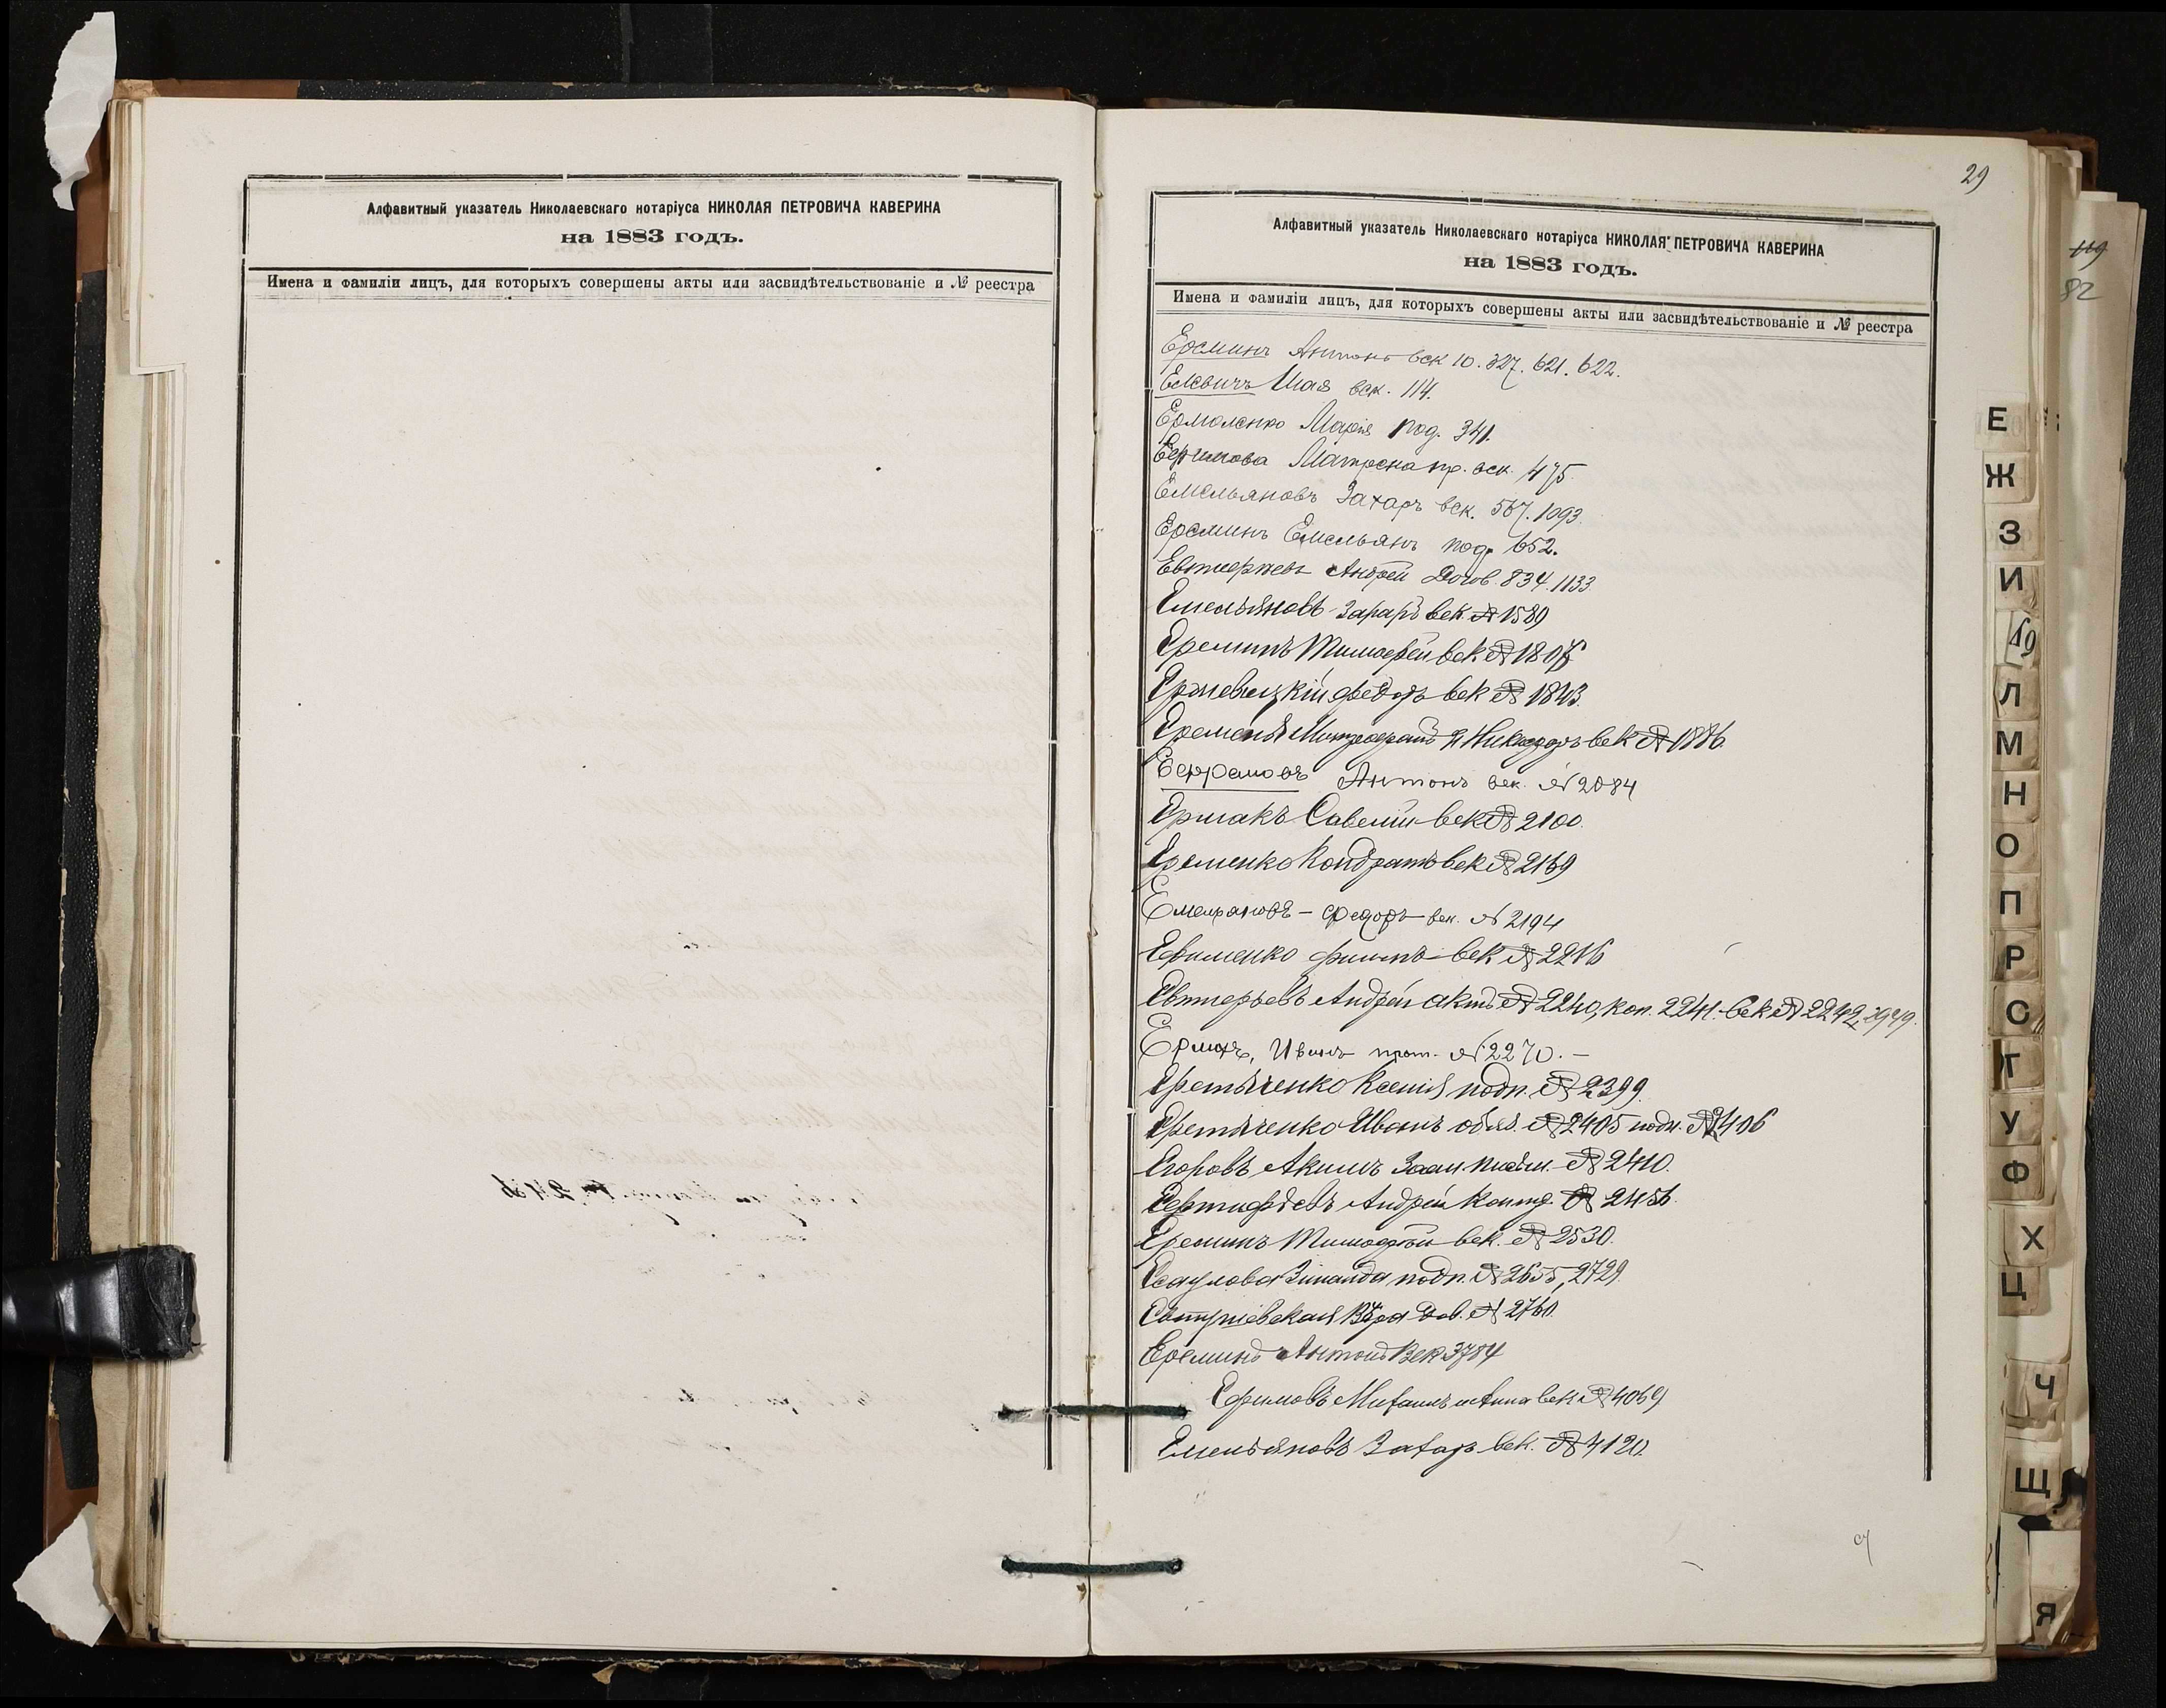 Алфавитный указатель Николаевскаго нотаріуса НИКОЛАЯ ПЕТРОВИЧА КАВЕРИНА
на 1883 годъ.
Имена и фамиліи лицъ, для которыхъ совершены акты или засвидѣтельствованіе и № реестра
29
Алфавитный указатель Николаевскаго нотаріуса НИКОЛАЯ ПЕТРОВИЧА КАВЕРИНА
на 1883 годъ.
Имена и фамиліи лицъ, для которыхъ совершены акты или засвидѣтельствованіе и № реестра
Ереминъ Антонъ век 10. 327. 621. 622.
Елевичъ век. 114.
Ермоленко Марія под. 341.
Матрена пр. век. 475.
Емельяновъ Захаръ век. 567. 1093.
Ереминъ Емельянъ под. 652.
Евтиерпевъ Андрей Догов. 834. 1133
Емельяновъ Захаръ век. № 1589
Ереминъ Тимофей век № 1807
Ержевицкій Федоръ век № 1843.
Еременъ Митрофанъ и Никифоръ век № 1886.
Ефремовъ Антонъ век. № 2084
Ермакъ Савелій век № 2100.
Еременко Кондратъ век № 2169
Федоръ век. № 2194
Ефименко век № 2216
Андрей актъ № 2240, коп. 2241. век № 2242,
Иванъ прот. № 2270. —
Еретыченко Ксенія подп. № 2399.
Еретыченко Иванъ обяз. № 2405 подп. № 2406
Егоровъ Акимъ № 2410.
Андрей № 2456.
Ереминъ Тимофей век. № 2530.
Есаулова Зинаида подп. № 2655, 2729.
Вѣра Дов. № 2760.
Ереминъ Антонъ Век 3784
Ефимовъ Михаилъ и Анна век № 4069
Емельяновъ Захаръ век. № 4120.
119
82
Е
Ж
З
И
Л
М
Н
О
П
Р
С
Т
У
Ф
Х
Ц
Ч
Щ
Я